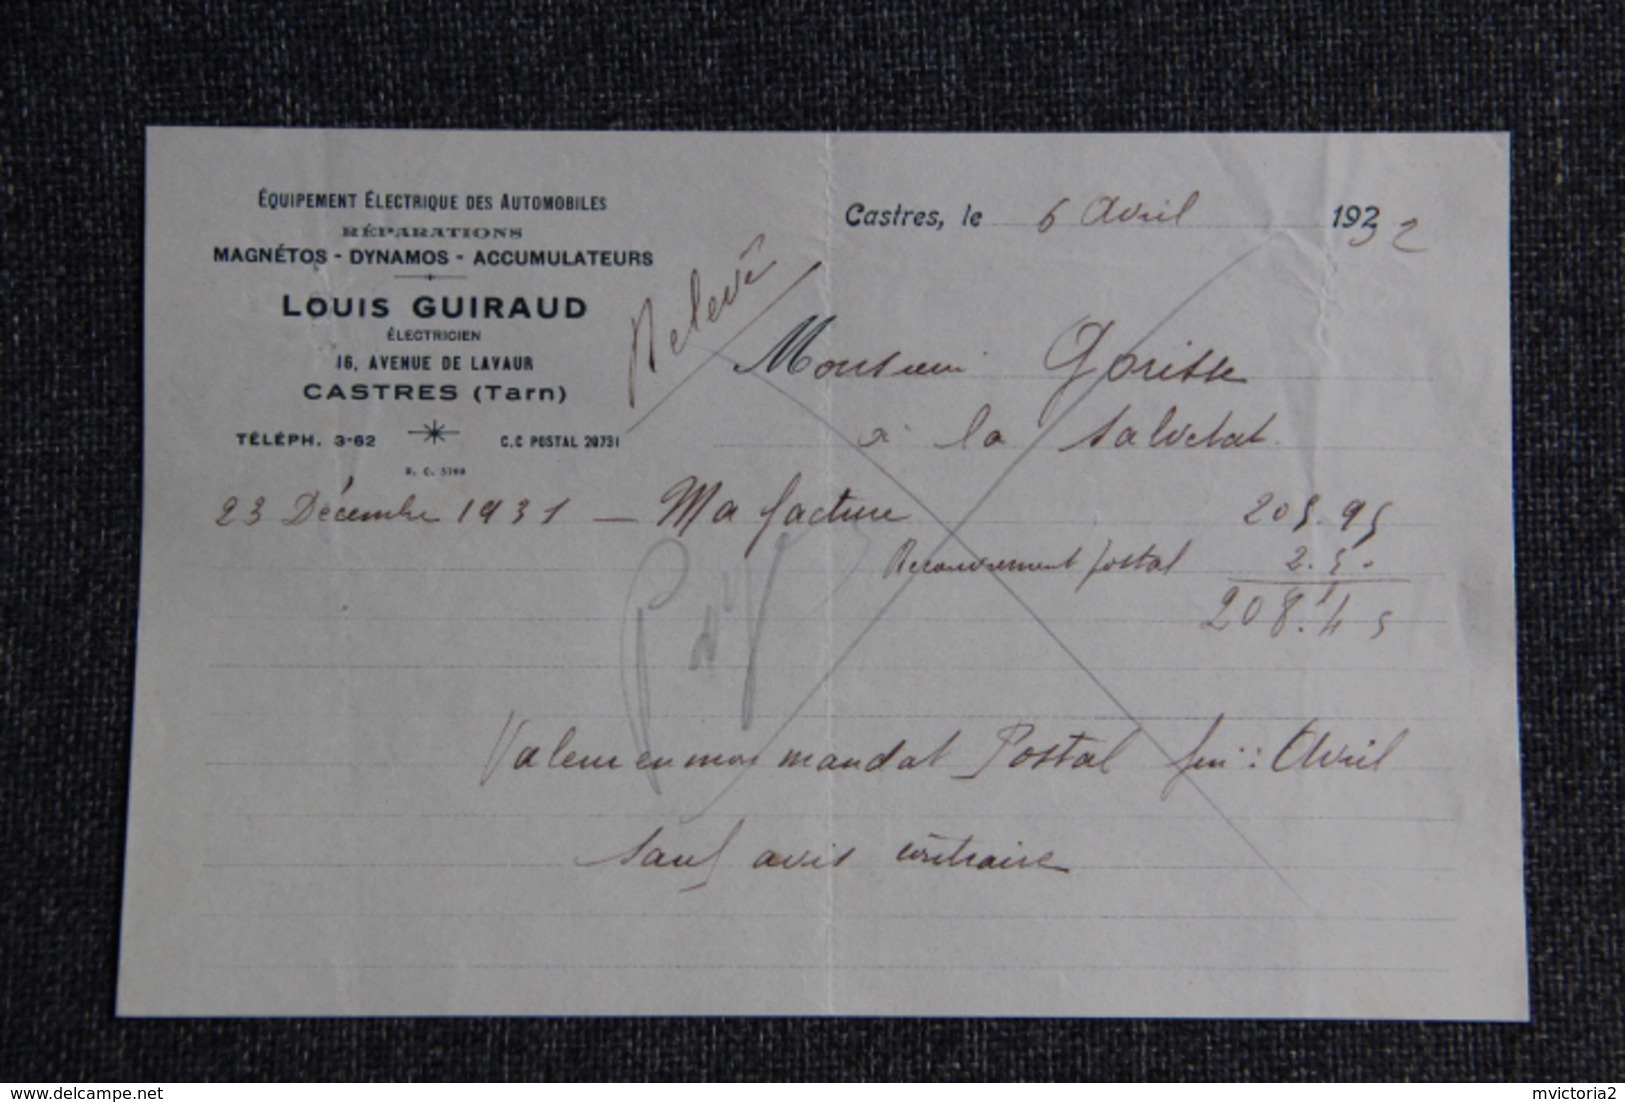 ÉQUIPEMENT ÉLECTRIQUE DES AUTOMOBILES
RÉPARATIONS
MAGNÉTOS - DYNAMOS - ACCUMULATEURS
LOUIS GUIRAUD
ÉLECTRICIEN
16, AVENUE DE LAVAUR
CASTRES (Tarn)
TÉLÉPH. 3-62 C.C POSTAL 20731
R. C. 5769
Castres, le 6 Avril 1932
Relevé
Monsieur Gorisse
à la Salvetat
23 Décembre 1931 — Ma facture 205.95
Recouvrement postal 2.50
208.45
Valeur en mon mandat Postal fin Avril
sauf avis contraire
mvictoria2